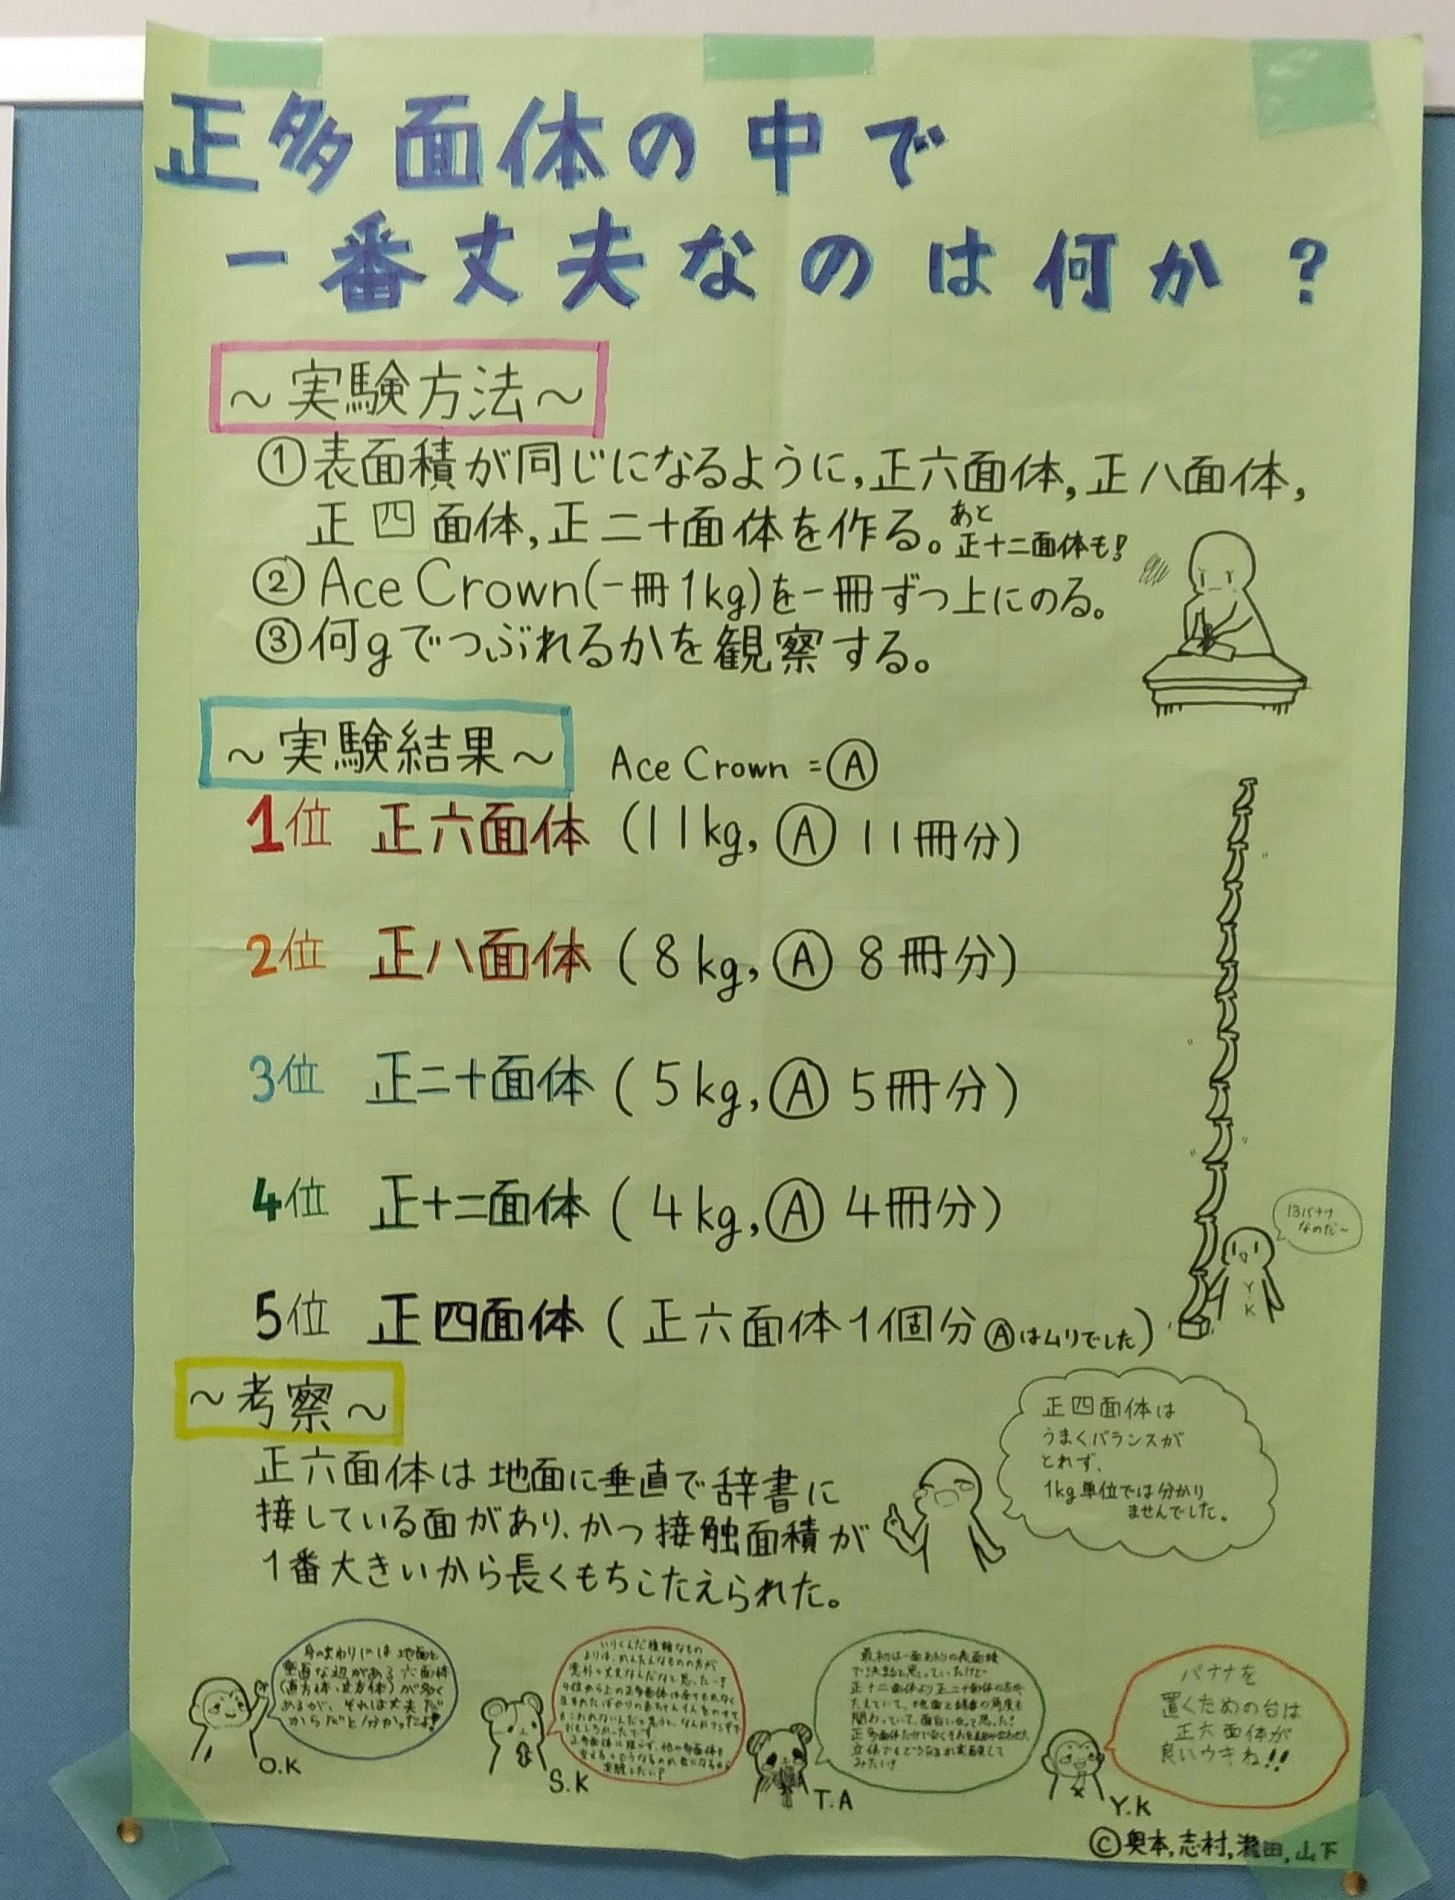 正多面体の中で
一番丈夫なのは何か?
～実験方法～
①表面積が同じになるように,正六面体,正八面体,
正四面体,正二十面体を作る。あと
正十二面体も!
②Ace Crown(一冊1kg)を一冊ずつ上にのる。
③何gでつぶれるかを観察する。
～実験結果～ Ace Crown=Ⓐ
1位 正六面体 (11kg, Ⓐ 11冊分)
2位 正八面体 (8kg, Ⓐ 8冊分)
3位 正二十面体 (5kg, Ⓐ 5冊分)
4位 正十二面体 (4kg, Ⓐ 4冊分)
5位 正四面体 (正六面体1個分 Ⓐはムリでした)
13バナナ
なのだ～
Y.K
～考察～
正六面体は地面に垂直で辞書に
接している面があり、かつ接触面積が
1番大きいから長くもちこたえられた。
正四面体は
うまくバランスが
とれず、
1kg単位では分かり
ませんでした。
身のまわりには地面と
垂直な辺がある六面体
(直方体、立方体)が多く
あるが、それは丈夫だ
からだと分かったよ!
O.K
いりくんだ複雑なもの
よりは、かんたんなものの方が
意外と丈夫なんだなと思った!
S.K
最初は一面あたりの表面積
で決まると思っていたけど
正十二面体より正二十面体の方が
たえていて、地面と辞書の角度も
関わっていて、面白いなって思った!
立体でもどうなるか実験して
みたい!
T.A
バナナを
置くための台は
正六面体が
良いウキね!!
Y.K
©奥本,志村,瀧田,山下